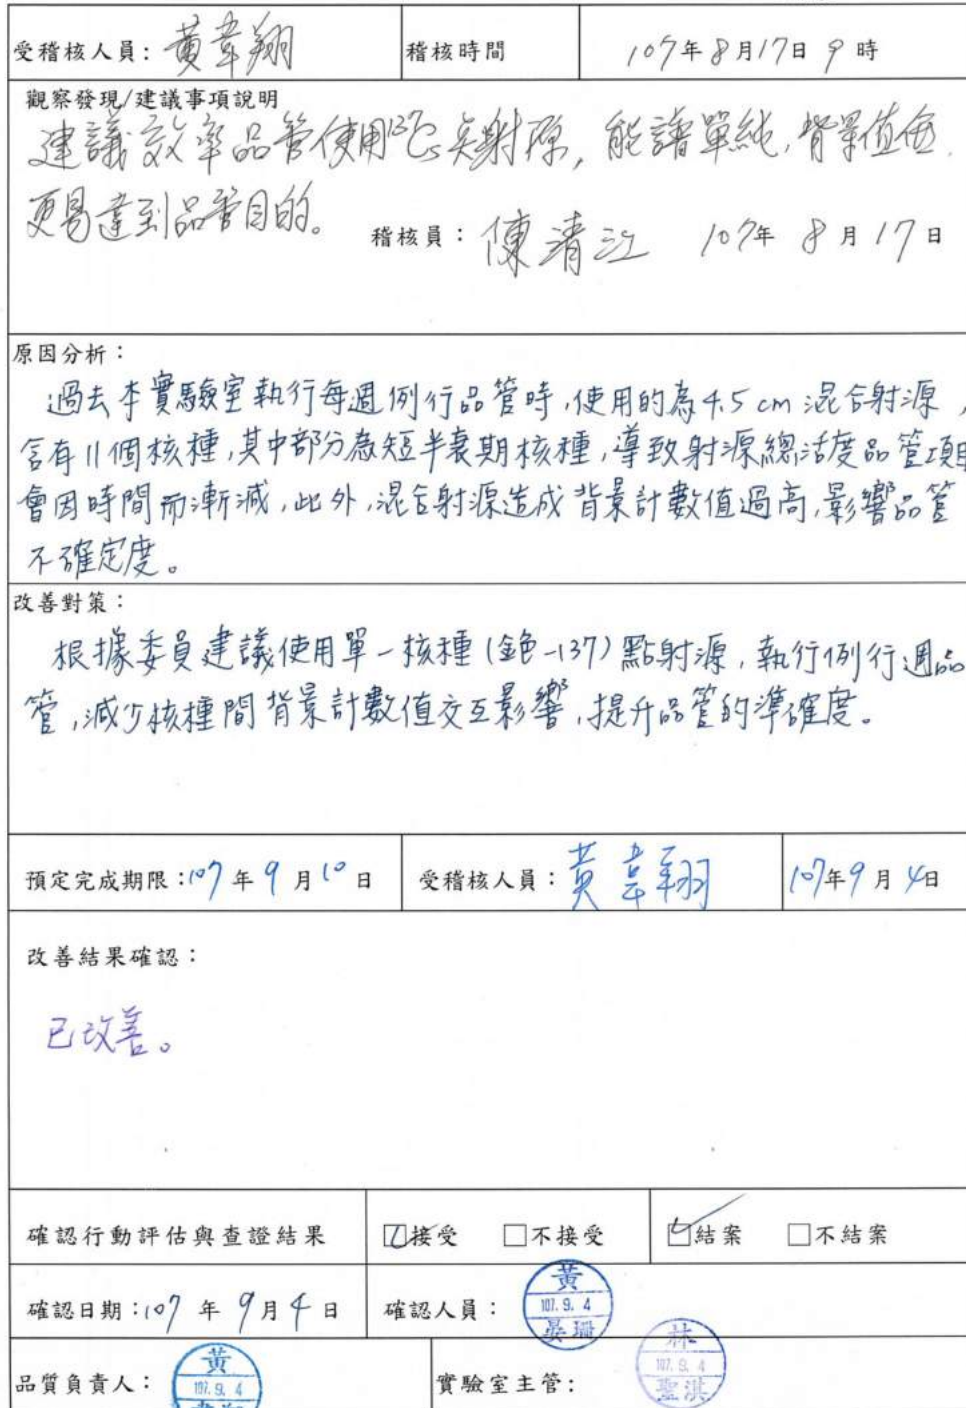 受稽核人員：黃韋翔 稽核時間 107年8月17日9時
觀察發現/建議事項說明
建議效率品管使用137Cs點射源，能譜單純，背景值低，
更易達到品管目的。
稽核員：陳清江 107年8月17日
原因分析：
過去本實驗室執行每週例行品管時，使用的為4.5 cm 混合射源，
含有11個核種，其中部分為短半衰期核種，導致射源總活度品管項目
會因時間而漸減，此外，混合射源造成背景計數值過高，影響品管
不確定度。
改善對策：
根據委員建議使用單一核種(銫-137)點射源，執行例行週品
管，減少核種間背景計數值交互影響，提升品管的準確度。
預定完成期限：107年9月10日 受稽核人員：黃韋翔 107年9月4日
改善結果確認：
已改善。
確認行動評估與查證結果 ☑接受 □不接受 ☑結案 □不結案
確認日期：107年9月4日 確認人員：黃 107.9.4 晏珊
品質負責人：黃 107.9.4 實驗室主管：林 107.9.4 聖淇